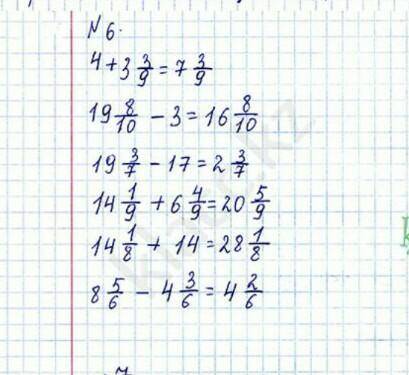 N6.
4 + 3 3/9 = 7 3/9
19 8/10 - 3 = 16 8/10
19 3/7 - 17 = 2 3/7
14 1/9 + 6 4/9 = 20 5/9
14 1/8 + 14 = 28 1/8
8 5/6 - 4 3/6 = 4 2/6